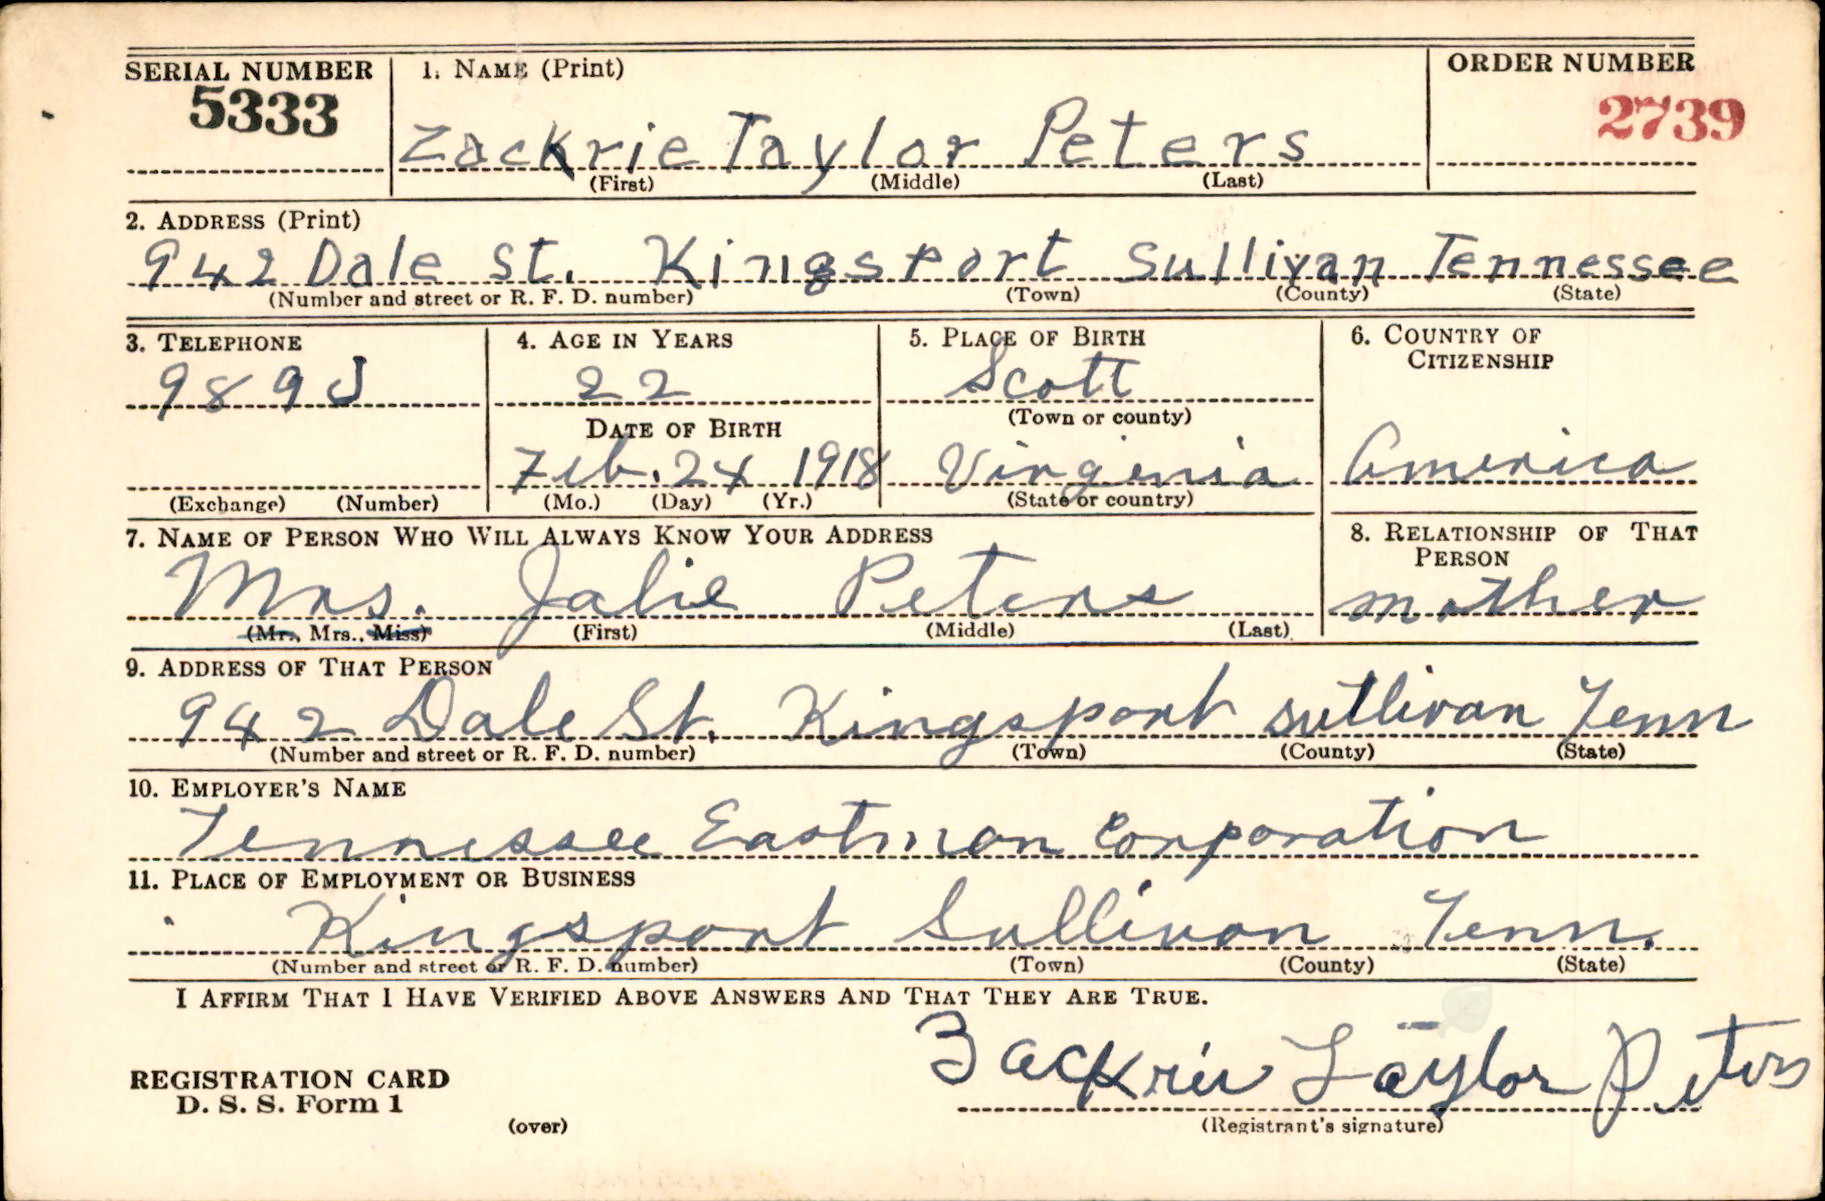 SERIAL NUMBER 1. NAME (Print) ORDER NUMBER
5333 2739
Zackrie Taylor Peters
(First) (Middle) (Last)
2. ADDRESS (Print)
942 Dale St. Kingsport Sullivan Tennessee
(Number and street or R. F. D. number) (Town) (County) (State)
3. TELEPHONE 4. AGE IN YEARS 5. PLACE OF BIRTH 6. COUNTRY OF
CITIZENSHIP
989J 22 Scott
(Town or county)
DATE OF BIRTH
Feb. 24 1918 Virginia America
(Exchange) (Number) (Mo.) (Day) (Yr.) (State or country)
7. NAME OF PERSON WHO WILL ALWAYS KNOW YOUR ADDRESS 8. RELATIONSHIP OF THAT
PERSON
Mrs. Jalie Peters mother
(Mr., Mrs., Miss) (First) (Middle) (Last)
9. ADDRESS OF THAT PERSON
942 Dale St. Kingsport Sullivan Tenn
(Number and street or R. F. D. number) (Town) (County) (State)
10. EMPLOYER'S NAME
Tennessee Eastman Corporation
11. PLACE OF EMPLOYMENT OR BUSINESS
Kingsport Sullivan Tenn.
(Number and street or R. F. D. number) (Town) (County) (State)
I AFFIRM THAT I HAVE VERIFIED ABOVE ANSWERS AND THAT THEY ARE TRUE.
Zackrie Taylor Peters
REGISTRATION CARD
D. S. S. Form 1
(over) (Registrant's signature)